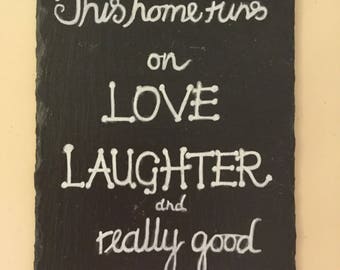 This home runs
on
LOVE
LAUGHTER
and
really good